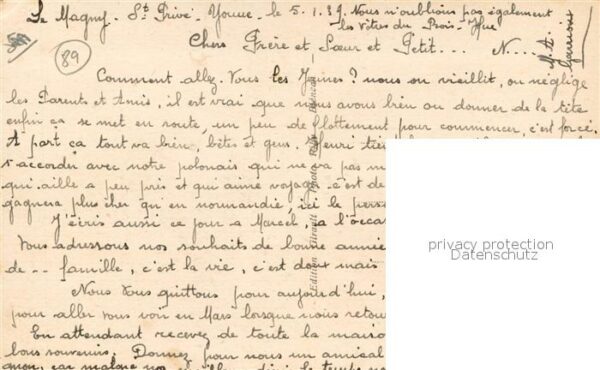 Le Magny. St Privé. Yonne. le 5.1.39. Nous n'oublions pas également
les vôtres du Bois-Hue
Chers Frère et Sœur et Petit... N....
89
Comment allez-Vous les Jeunes? nous on vieillit, on néglige
les Parents et Amis, il est vrai que nous avons bien ou donner de la tête
enfin ça se met en route, un peu de flottement pour commencer, c'est forcé.
A part ça tout va bien, bêtes et gens. Henri tien
s'accorder avec notre polonais qui ne va pas m
qui aille a peu près et qui aime voyage c'est de
gagnera plus cher qu'en normandie, ici le pers
J'écris aussi ce jour a Marcel, a l'occa
Vous adressons nos souhaits de bonne année
de -- famille, c'est la vie, c'est doux mais
Nous Vous quittons pour aujourd'hui,
pour aller vous voir en Mars lorsque nous retou
En attendant recevez de toute la maiso
bons souvenirs. Donnez pour nous un amical
privacy protection
Datenschutz